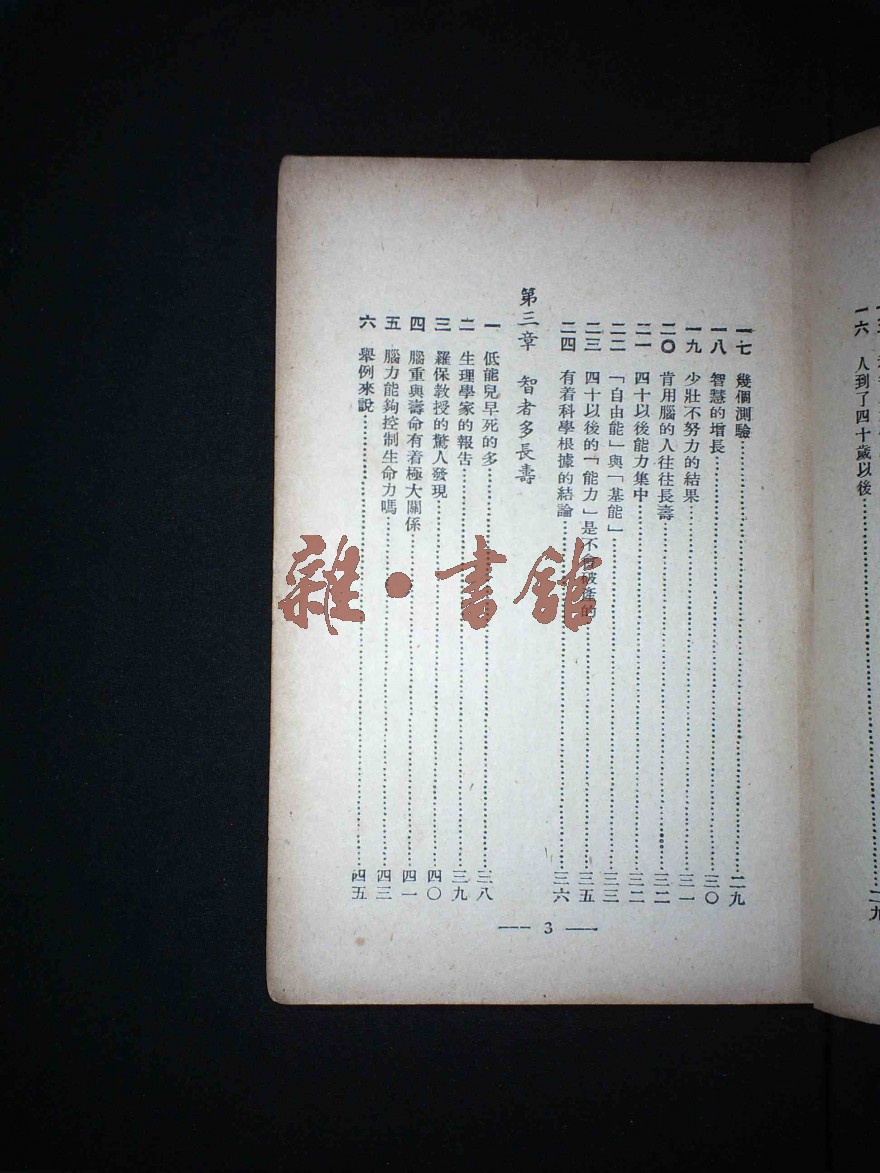 一六 人到了四十歲以後
一七 幾個測驗……二九
一八 智慧的增長……三〇
一九 少壯不努力的結果……三一
二〇 肯用腦的人往往長壽……三二
二一 四十以後能力集中……三二
二二 「自由能」與「基能」……三三
二三 四十以後的「能力」是不會破產的……三五
二四 有着科學根據的結論……三六
第三章 智者多長壽
一 低能兒早死的多……三八
二 生理學家的報告……三九
三 羅保教授的驚人發現……四〇
四 腦重與壽命有着極大關係……四一
五 腦力能夠控制生命力嗎……四三
六 舉例來說……四五
— 3 —
雜·書館